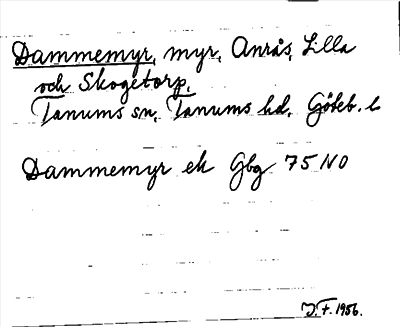 Dammemyr, myr, Anrås, Lilla
och Skogetorp,
Tanums sn, Tanums hd, Göteb. l
Dammemyr ek Gbg 75 NO
J.F. 1956.